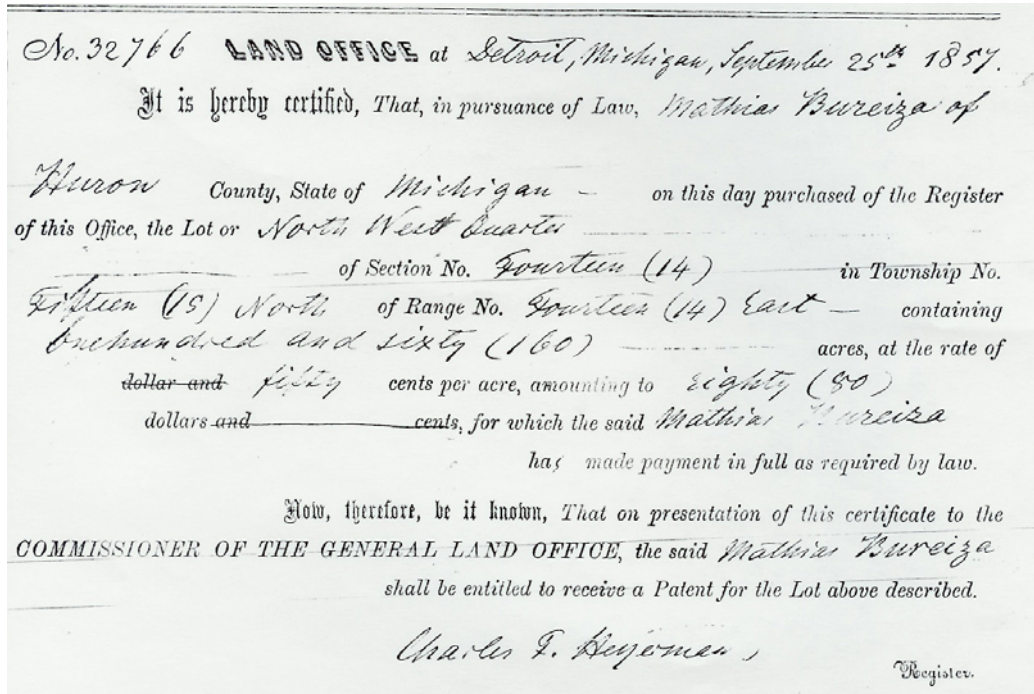 No. 32766 LAND OFFICE at Detroit, Michigan, September 25th 1857.
It is hereby certified, That, in pursuance of Law, Mathias Bureiza of
Huron County, State of Michigan — on this day purchased of the Register
of this Office, the Lot or North West Quarter
of Section No. Fourteen (14) in Township No.
Fifteen (15) North of Range No. Fourteen (14) East — containing
Onehundred and sixty (160) acres, at the rate of
dollar and fifty cents per acre, amounting to Eighty (80)
dollars and cents, for which the said Mathias Bureiza
has made payment in full as required by law.
Now, therefore, be it known, That on presentation of this certificate to the
COMMISSIONER OF THE GENERAL LAND OFFICE, the said Mathias Bureiza
shall be entitled to receive a Patent for the Lot above described.
Charles F. Heyerman,
Register.